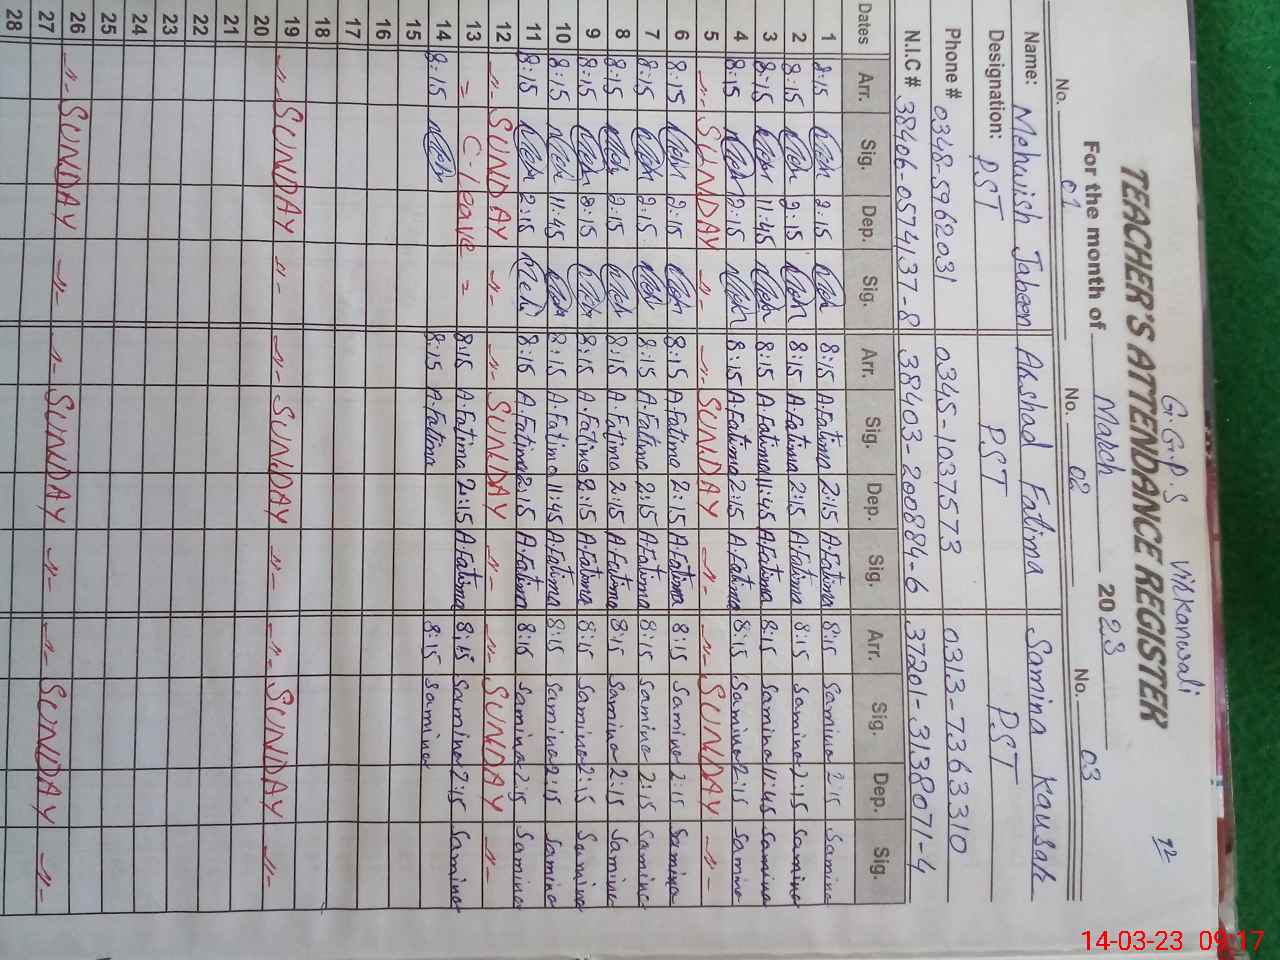 G.G.P.S Virkanwali
92
TEACHER'S ATTENDANCE REGISTER
For the month of March 2023
No. 01 No. 02 No. 03
Name: Mehwish Jabeen Akshad Fatima Samina Kausar
Designation: PST PST PST
Phone # 0348-5962031 0345-1037573 0313-7363310
N.I.C # 38406-0574137-8 38403-200884-6 37201-3138071-4
Dates Arr. Sig. Dep. Sig. Arr. Sig. Dep. Sig. Arr. Sig. Dep. Sig.
1 8:15 Meh 2:15 Meh 8:15 A.Fatima 2:15 A.Fatima 8:15 Samina 2:15 Samina
2 8:15 Meh 2:15 Meh 8:15 A.Fatima 2:15 A.Fatima 8:15 Samina 2:15 Samina
3 8:15 Meh 11:45 Meh 8:15 A.Fatima 11:45 A.Fatima 8:15 Samina 11:45 Samina
4 8:15 Meh 2:15 Meh 8:15 A.Fatima 2:15 A.Fatima 8:15 Samina 2:15 Samina
5 -"- SUNDAY -"- -"- SUNDAY -"- -"- SUNDAY -"-
6 8:15 Meh 2:15 Meh 8:15 A.Fatima 2:15 A.Fatima 8:15 Samina 2:15 Samina
7 8:15 Meh 2:15 Meh 8:15 A.Fatima 2:15 A.Fatima 8:15 Samina 2:15 Samina
8 8:15 Meh 2:15 Meh 8:15 A.Fatima 2:15 A.Fatima 8:15 Samina 2:15 Samina
9 8:15 Meh 8:15 Meh 8:15 A.Fatima 2:15 A.Fatima 8:15 Samina 2:15 Samina
10 8:15 Meh 11:45 Meh 8:15 A.Fatima 11:45 A.Fatima 8:15 Samina 2:15 Samina
11 8:15 Meh 2:15 Meh 8:15 A.Fatima 2:15 A.Fatima 8:15 Samina 2:15 Samina
12 -"- SUNDAY -"- -"- SUNDAY -"- -"- SUNDAY -"-
13 = C-leave = 8:15 A.Fatima 2:15 A.Fatima 8:15 Samina 2:15 Samina
14 8:15 Meh 8:15 A.Fatima 8:15 Samina
15
16
17
18
19 -"- SUNDAY -"- -"- SUNDAY -"- -"- SUNDAY -"-
20
21
22
23
24
25
26 -"- SUNDAY -"- -"- SUNDAY -"- -"- SUNDAY -"-
27
28
14-03-23 09:17